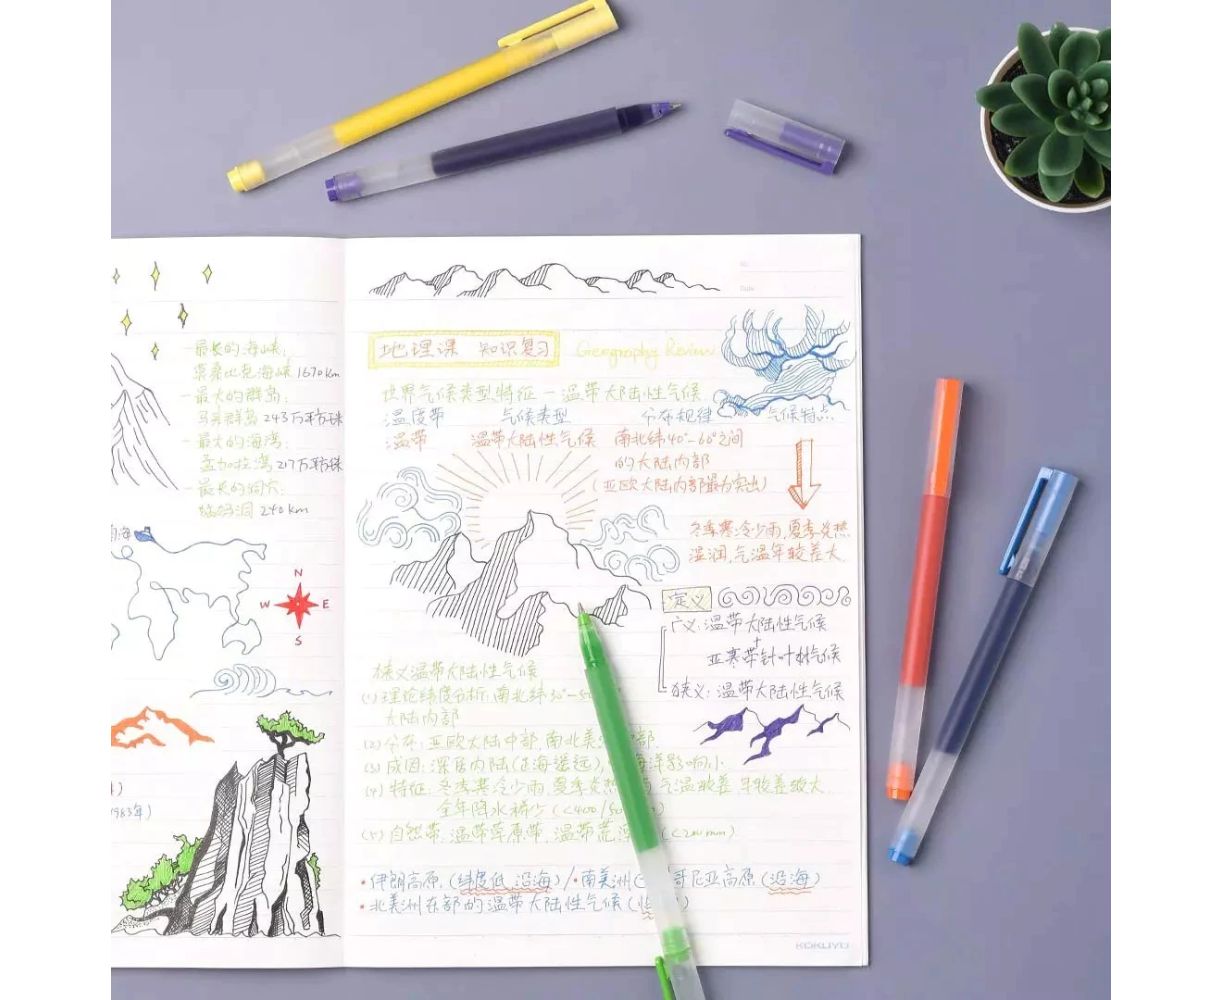 一最长的海峡:
莫桑比克海峡1670km
一最大的群岛:
马来群岛 243万平方
一最大的海湾:
孟加拉湾 217万平方
一最长的洞穴:
240km
N
W
E
S
1983年)
No.
Date
地理课 知识复习
Geography Review
世界气候类型特征 — 温带大陆性气候
温度带 气候类型 分布规律 气候特点
温带 温带大陆性气候 南北纬40°-60°之间
的大陆内部
(亚欧大陆内部最为突出)
冬季寒冷少雨,夏季炎热
湿润,气温年较差大
定义
广义:温带大陆性气候
+
亚寒带针叶林气候
狭义:温带大陆性气候
狭义温带大陆性气候
(1)理论纬度分析:南北纬30°-50
大陆内部
(2)分布:亚欧大陆中部,南北美
(3)成因:深居内陆(距海遥远),海洋影响小
(4)特征:冬季寒冷少雨,夏季炎热 气温较差,年较差较大
全年降水稀少(<400/50
(5)自然带:温带草原带,温带荒漠
•伊朗高原(纬度低,沿海)/•南美洲 哥尼亚高原(沿海)
•北美洲东部的温带大陆性气候(
KOKUYO